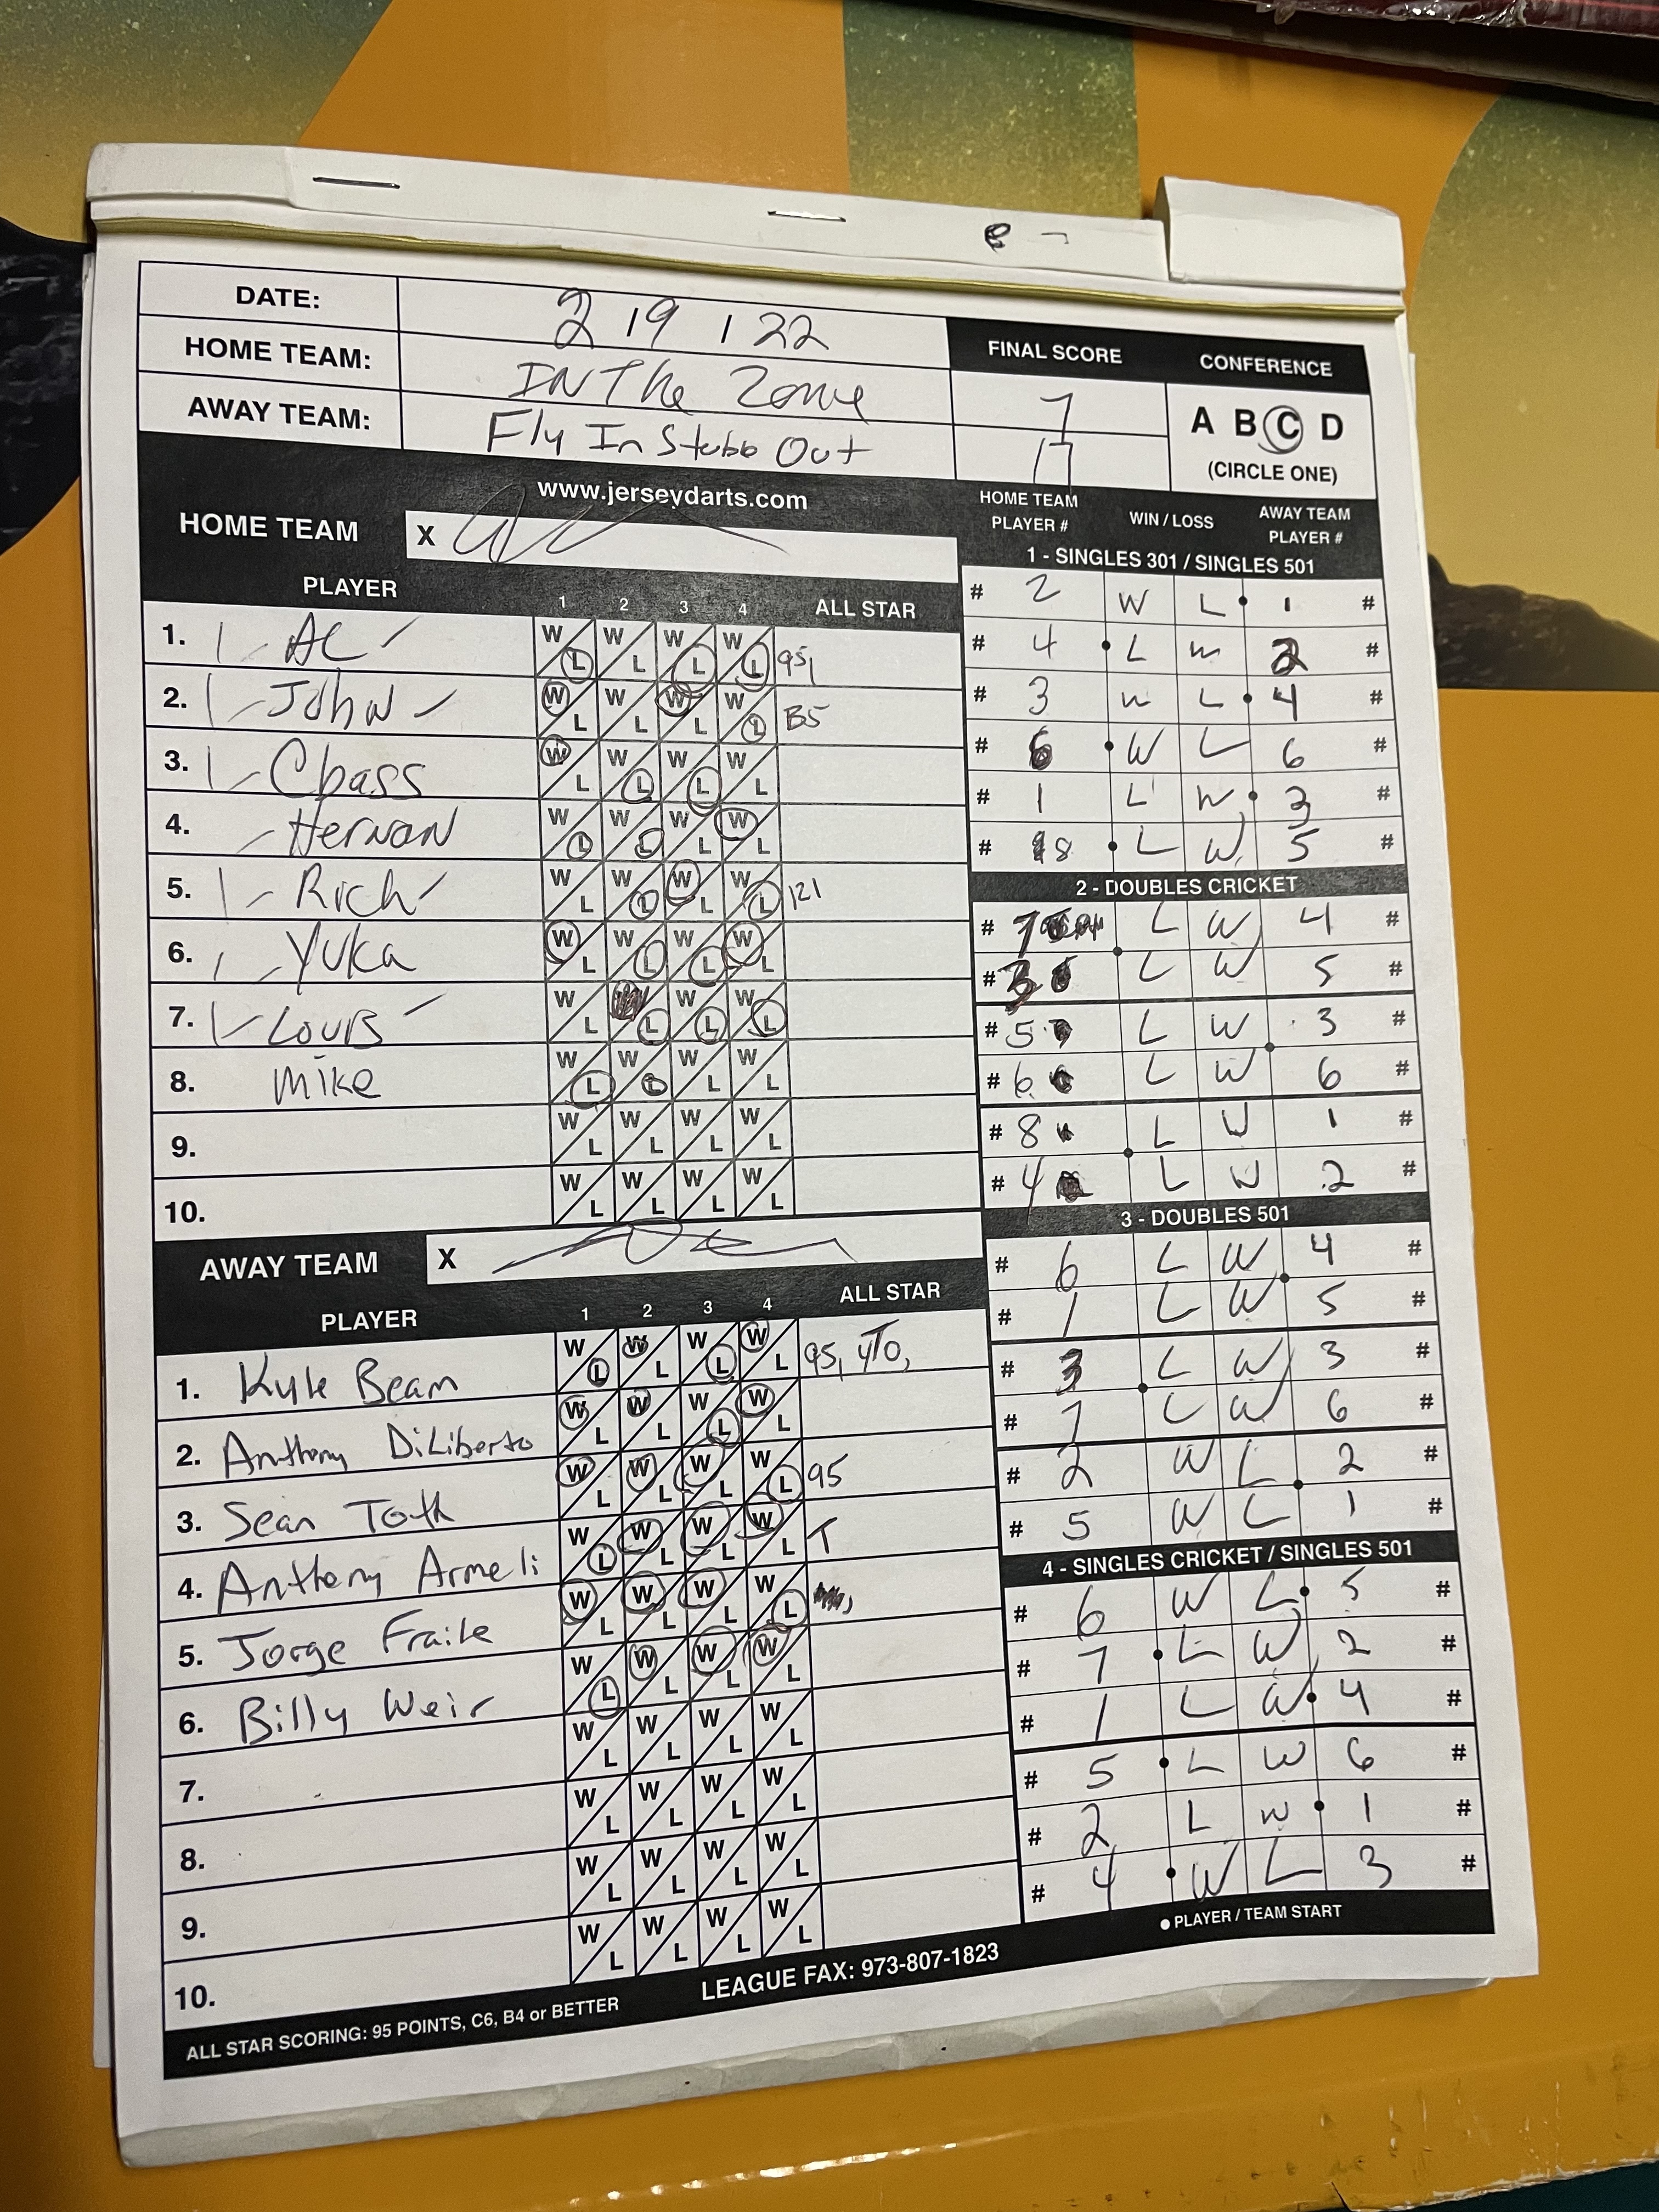 DATE: 2 19 1 22
HOME TEAM: IN The Zone
AWAY TEAM: Fly In Stubb Out
FINAL SCORE
7
17
CONFERENCE
A B C D
(CIRCLE ONE)
www.jerseydarts.com
HOME TEAM X
PLAYER 1 2 3 4 ALL STAR
1. AC W L W L W L W L 95,
2. John W L W L W L W L B5
3. Cbass W L W L W L W L
4. Hernan W L W L W L W L
5. Rich W L W L W L W L 121
6. Yuka W L W L W L W L
7. Louis W L L W L W L
8. Mike W L W L W L W L
9. W L W L W L W L
10. W L W L W L W L
AWAY TEAM X
PLAYER 1 2 3 4 ALL STAR
1. Kyle Beam W L W L W L W L 95, 4TO,
2. Anthony DiLiberto W L W L W L W L
3. Sean Toth W L W L W L W L 95
4. Anthony Armeli W L W L W L W L T
5. Jorge Fraile W L W L W L W L
6. Billy Weir W L W L W L W L
7. W L W L W L W L
8. W L W L W L W L
9. W L W L W L W L
10. W L W L W L W L
ALL STAR SCORING: 95 POINTS, C6, B4 or BETTER
LEAGUE FAX: 973-807-1823
HOME TEAM PLAYER # WIN / LOSS AWAY TEAM PLAYER #
1 - SINGLES 301 / SINGLES 501
# 2 W L 1 #
# 4 L W 2 #
# 3 W L 4 #
# 6 W L 6 #
# 1 L W 3 #
# 8 L W 5 #
2 - DOUBLES CRICKET
# 7 L W 4 #
# 3 L W 5 #
# 5 L W 3 #
# 6 L W 6 #
# 8 L W 1 #
# 4 L W 2 #
3 - DOUBLES 501
# 6 L W 4 #
# 1 L W 5 #
# 3 L W 3 #
# 7 L W 6 #
# 2 W L 2 #
# 5 W L 1 #
4 - SINGLES CRICKET / SINGLES 501
# 6 W L 5 #
# 7 L W 2 #
# 1 L W 4 #
# 5 L W 6 #
# 2 L W 1 #
# 4 W L 3 #
PLAYER / TEAM START